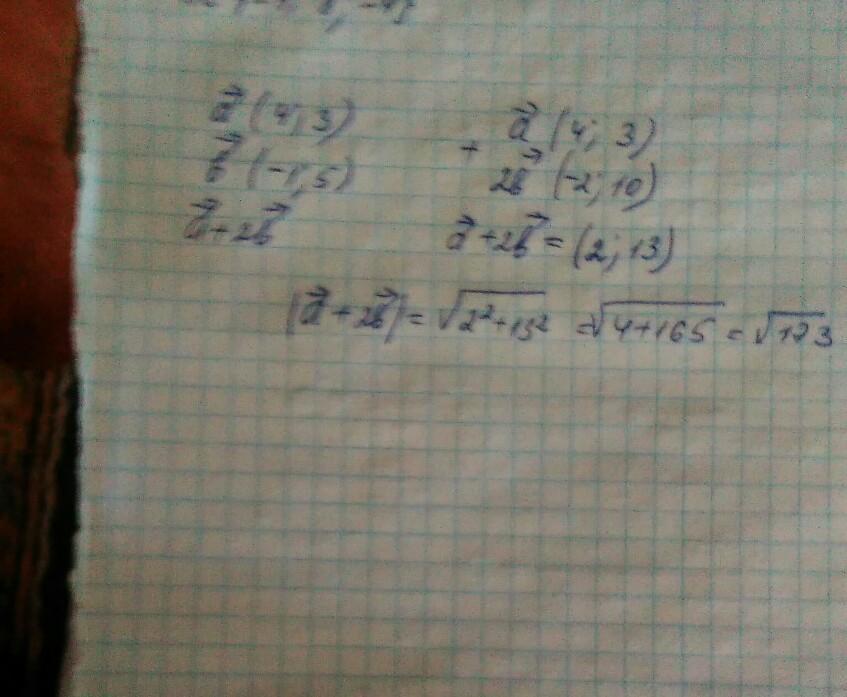 a⃗ (4; 3)
b⃗ (-1; 5)
a⃗ + 2b⃗
+ a⃗ (4; 3)
2b⃗ (-2; 10)
a⃗ + 2b⃗ = (2; 13)
|a⃗ + 2b⃗| = √2²+13² = √4+165 = √173